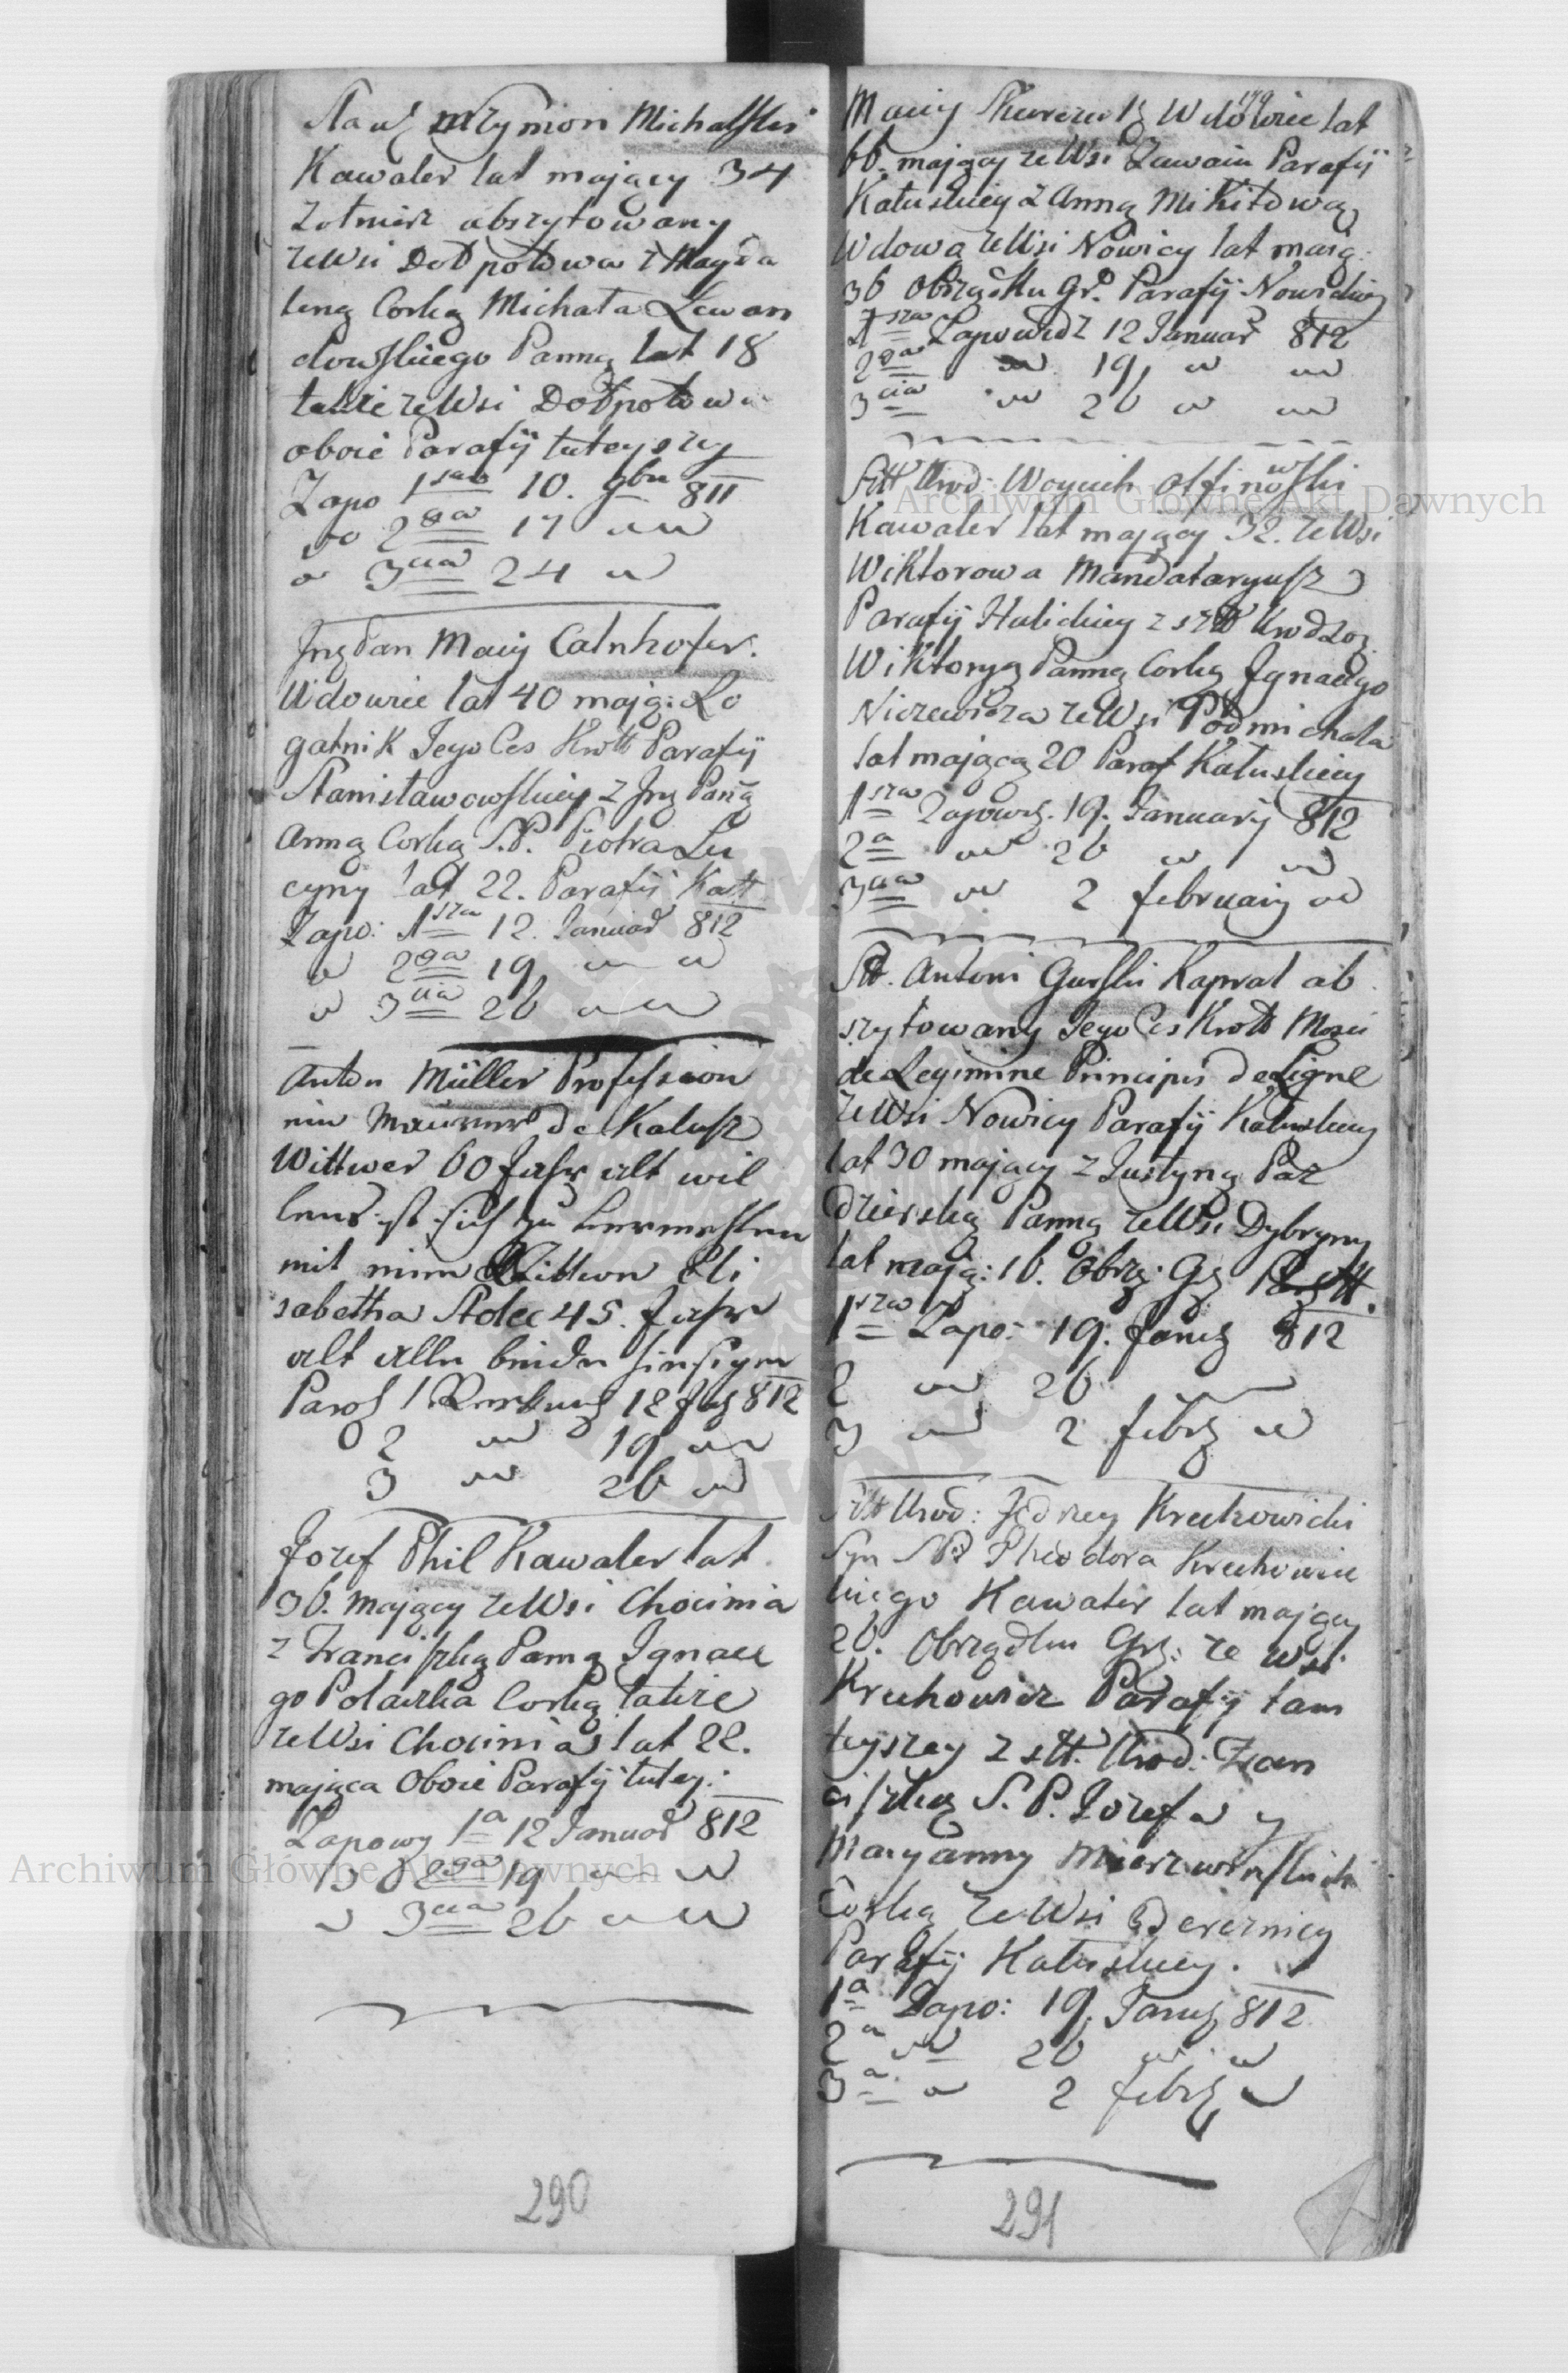 Szymon Michalski
Kawaler lat mający 34
Zołnierz abszytowany
zeWsi Dołpotowa z Magda
leną Corką Michała Lewan
dowskiego Panną lat 18
także zeWsi Dołpotowa
oboie Parafij tuteyszey
Zapo 1sza 10. 9bris 811
do 2ga 17
3cia 24
Jmć Pan Maciy Calnhofer.
Wdowiec lat 40 mają: Lo
gatnik Jego Ces Krott Parafij
Stanisławowskiey z Jmć Panną
Anną Corką S.P. Piotra Lu
cyny lat 22. Parafij Katt
Zapo: 1sza 12. Januar 812
2ga 19
3cia 26
Anton Müller Profession
ein Maurer de Kalusz
Wittwer 60 Jahr alt wil
lens ist sich zu
mit einer Wittwen Eli
sabetha Stolec 45. Jahr
alt alle beide hiesigen
Parof 1 12 812
2 19
3 26
Jozef Phil Kawaler lat
36. mający zeWsi Chocimia
z Franciszką Panną Ignace
go Polaczka Corką także
zeWsi Chocimia lat 22.
mająca Oboie Parafij tutey:
Zapowy 1a 12 Januar 812
do 2ga 19
3cia 26
290
179
Maciy Wdowiec lat
66. mający zeWsi Zawain Parafij
Kałuskiey z Anną Mikitową
Wdową zeWsi Nowicy lat mają:
36 Obrządku Gr. Parafij Nowickiey
1sza Zapowiedz 12 Januar 812
2ga 19
3cia 26
Urod: Woyciech Olfinowski
Kawaler lat mający 32. zeWsi
Wiktorowa Mandataryusz
Parafij Halickiey z Urodzoą
Wiktoryą Panną Corką Jgnacego
Niczewicza zeWsi Podmichala
lat mającą 20 Paraf Kałuskiey
1sza Zapową. 19. January 812
2a 26
3cia 2 february
Antoni Gurski Kapral ab
szytowany Jego Ces Krott Mosci
de Legimine Principis de Ligne
zeWsi Nowicy Parafij Kałuskiey
lat 30 mający z Justyną Paz
dzierską Panną zeWsi Dybryny
lat mają: 16. Obrzą: Gr
1sza Zapo: 19. Janu 812
2 26
3 2 febr
Urod: Jędrzey Krechowicki
Syn Theodora Krechowic
kiego Kawaler lat mający
26. Obrządku Gr: ze wsi
Krechowicz Parafij tam
teyszey z Urod: Fran
ciszką S.P. Jozefa y
Maryanny
Corką zeWsi Bereznicy
Parafij Kałuskiey.
1a Zapo: 19. Janu 812
2a 26
3a 2 febr
291
Archiwum Główne Akt Dawnych
Archiwum Główne Akt Dawnych